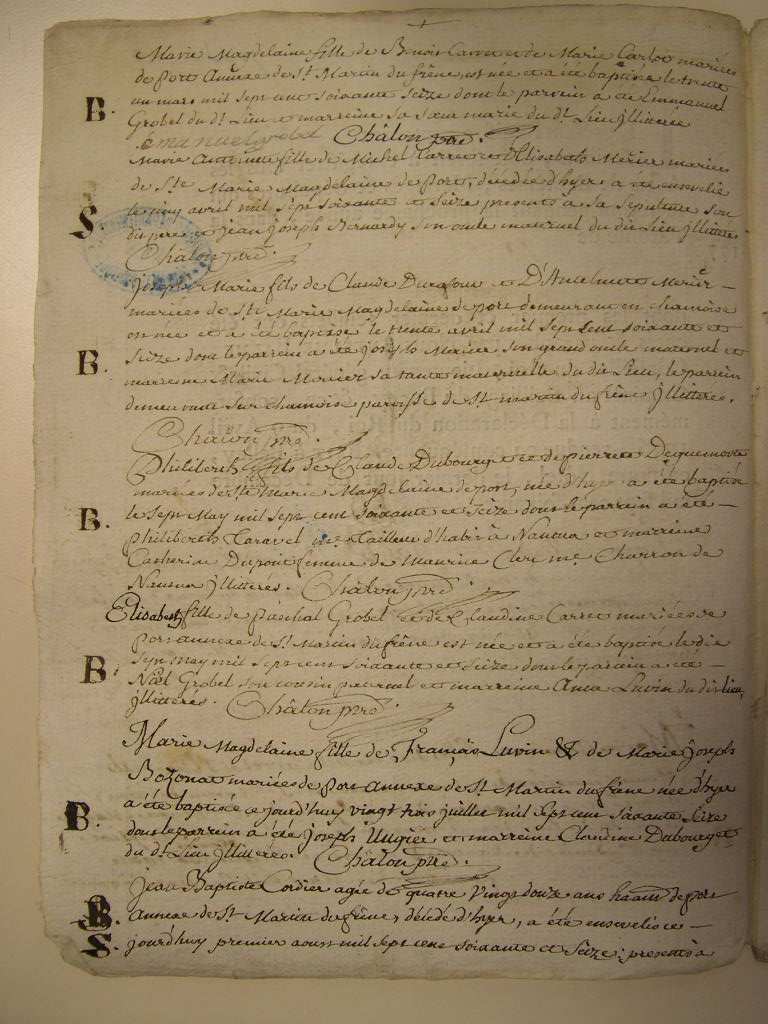 Marie Magdelaine fille de Benoit Carret et de Marie Carlot mariées
de port annexe de St. Martin du frêne, est née et a été baptisée le trente
B. un mars mil sept cent soixante seize dont le parrein a été Emmanuel
Grobel du dt. Lieu et marreine sa sœur marie du dt. Lieu jllitteré
emanuel grobel Châlon ptre.
Marie fille de Michel Carret et d'Elisabeth Mercier mariées
de Ste Marie Magdelaine de port, décédée d'hyer a été ensevelie
S. le avril mil sept soixante et seize presents a sa sepulture son
dit pere et jean joseph Bernardy son oncle maternel du dit Lieu jllitterés
Châlon ptre.
joseph Marie fils de Claude et D'Antelmette Mercier —
mariées de Ste Marie Magdelaine de port demeurant en chamoise
est née et a été baptisé le trente avril mil sept cent soixante et
B. seize dont le parrein a été joseph Mercier son grand oncle maternel et
marreine Marie Mercier sa tante maternelle du dit Lieu, le parrein
demeurant sur chamoise paroisse de St. martin du frêne jllitterés.
Châlon ptre.
Philiberth fils de Claude Dubourget et de pierrette Dequemotte
mariées de Ste marie Magdelaine de port, née d'hyer a été baptisé
B. le sept May mil sept cent soixante et seize dont le parrein a été —
philiberth Caravel Tailleur d'habit a Nantua et marreine
Catherine Dupont femme de Maurice Clerc me. Charron de
Nantua jllitterés. Châlon ptre.
Elisabeth fille de paschal Grobel et de Claudine Carret mariées de
port annexe de St. Martin du frêne est née et a été baptisée le dix
B. sept may mil sept cent soixante et seize dont le parrein a été —
Noël Grobel son cousin paternel et marreine Anne Luvin du dit lieu,
jllitterés. Châlon ptre.
Marie Magdelaine fille de François Luvin & de Marie joseph
Bozonat mariées de port annexe de St Martin du frêne née d'hyer
B. a été baptisée ce jourd'huy vingt trois juillet mil sept cent soixante seize
dont le parrein a été joseph et marreine Claudine Dubourget
du dt. Lieu jllitterés. Châlon ptre.
jean Baptiste Cordier agé de quatre vingt douze ans habitt. de port
B. annexe de St. Martin du frêne, décédé d'hyer, a été enseveli ce —
S. jourd'huy premier aoust mil sept cent soixante et seize: presents à